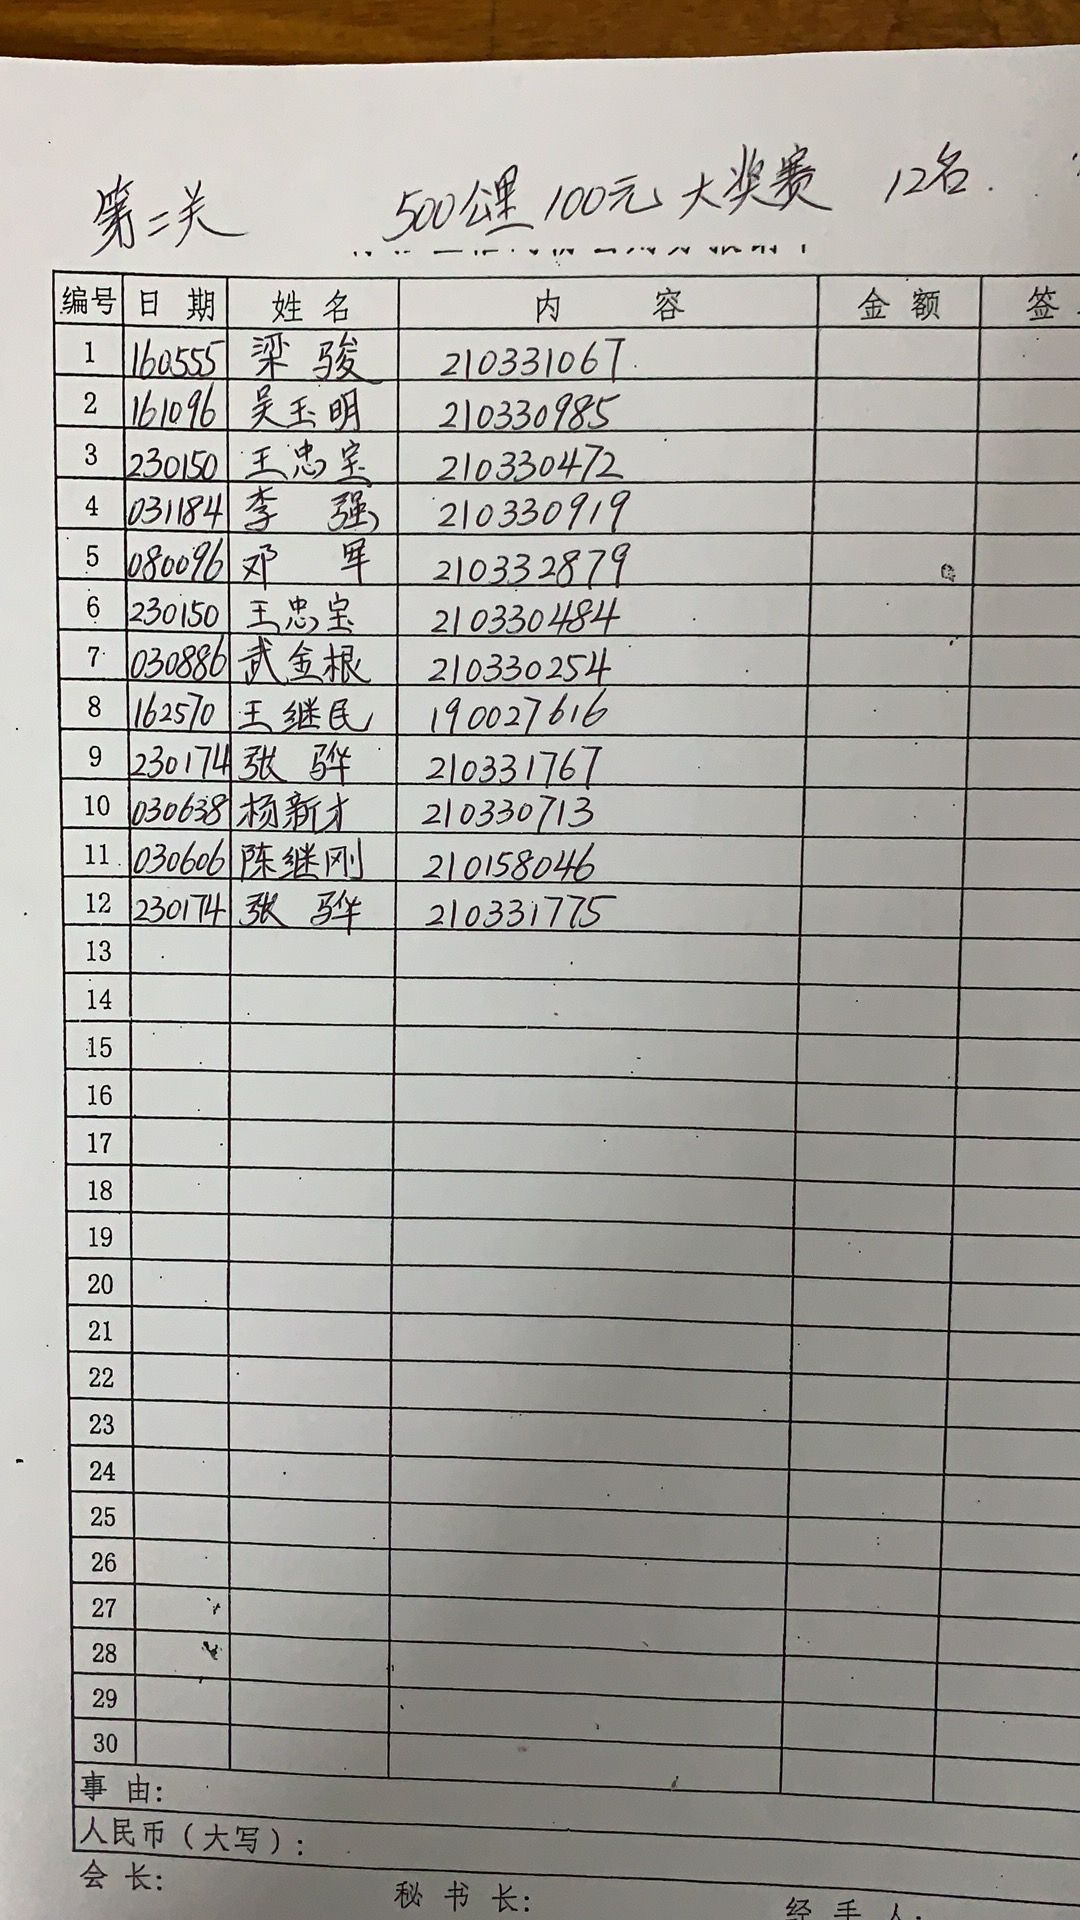 第二关 500公里100元大奖赛 12名.
编号 日 期 姓 名 内 容 金 额 签
1 160555 梁 骏 210331067
2 161096 吴玉明 210330985
3 230150 王忠宝 210330472
4 031184 李 强 210330919
5 080096 邓 军 210332879
6 230150 王忠宝 210330484
7 030886 武金根 210330254
8 162570 王继民 190027616
9 230174 张 骅 210331767
10 030638 杨新才 210330713
11 030606 陈继刚 210158046
12 230174 张 骅 210331775
13
14
15
16
17
18
19
20
21
22
23
24
25
26
27
28
29
30
事 由:
人民币(大写):
会 长: 秘 书 长: 经 手 人: